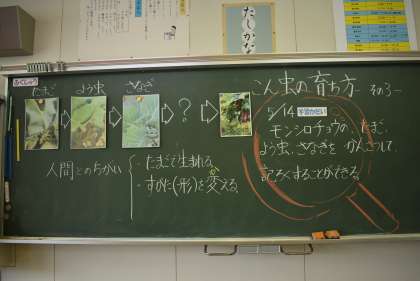 たしかな
ふくしゅう
たまご
よう虫
さなぎ
?
人間とのちがい
・たまごで生まれる
・すがた(形)を変える
こん虫の育ち方 その3ー
5/14 学習かだい
モンシロチョウの、たまご、
よう虫、さなぎを かんさつして、
記ろくすることができる。